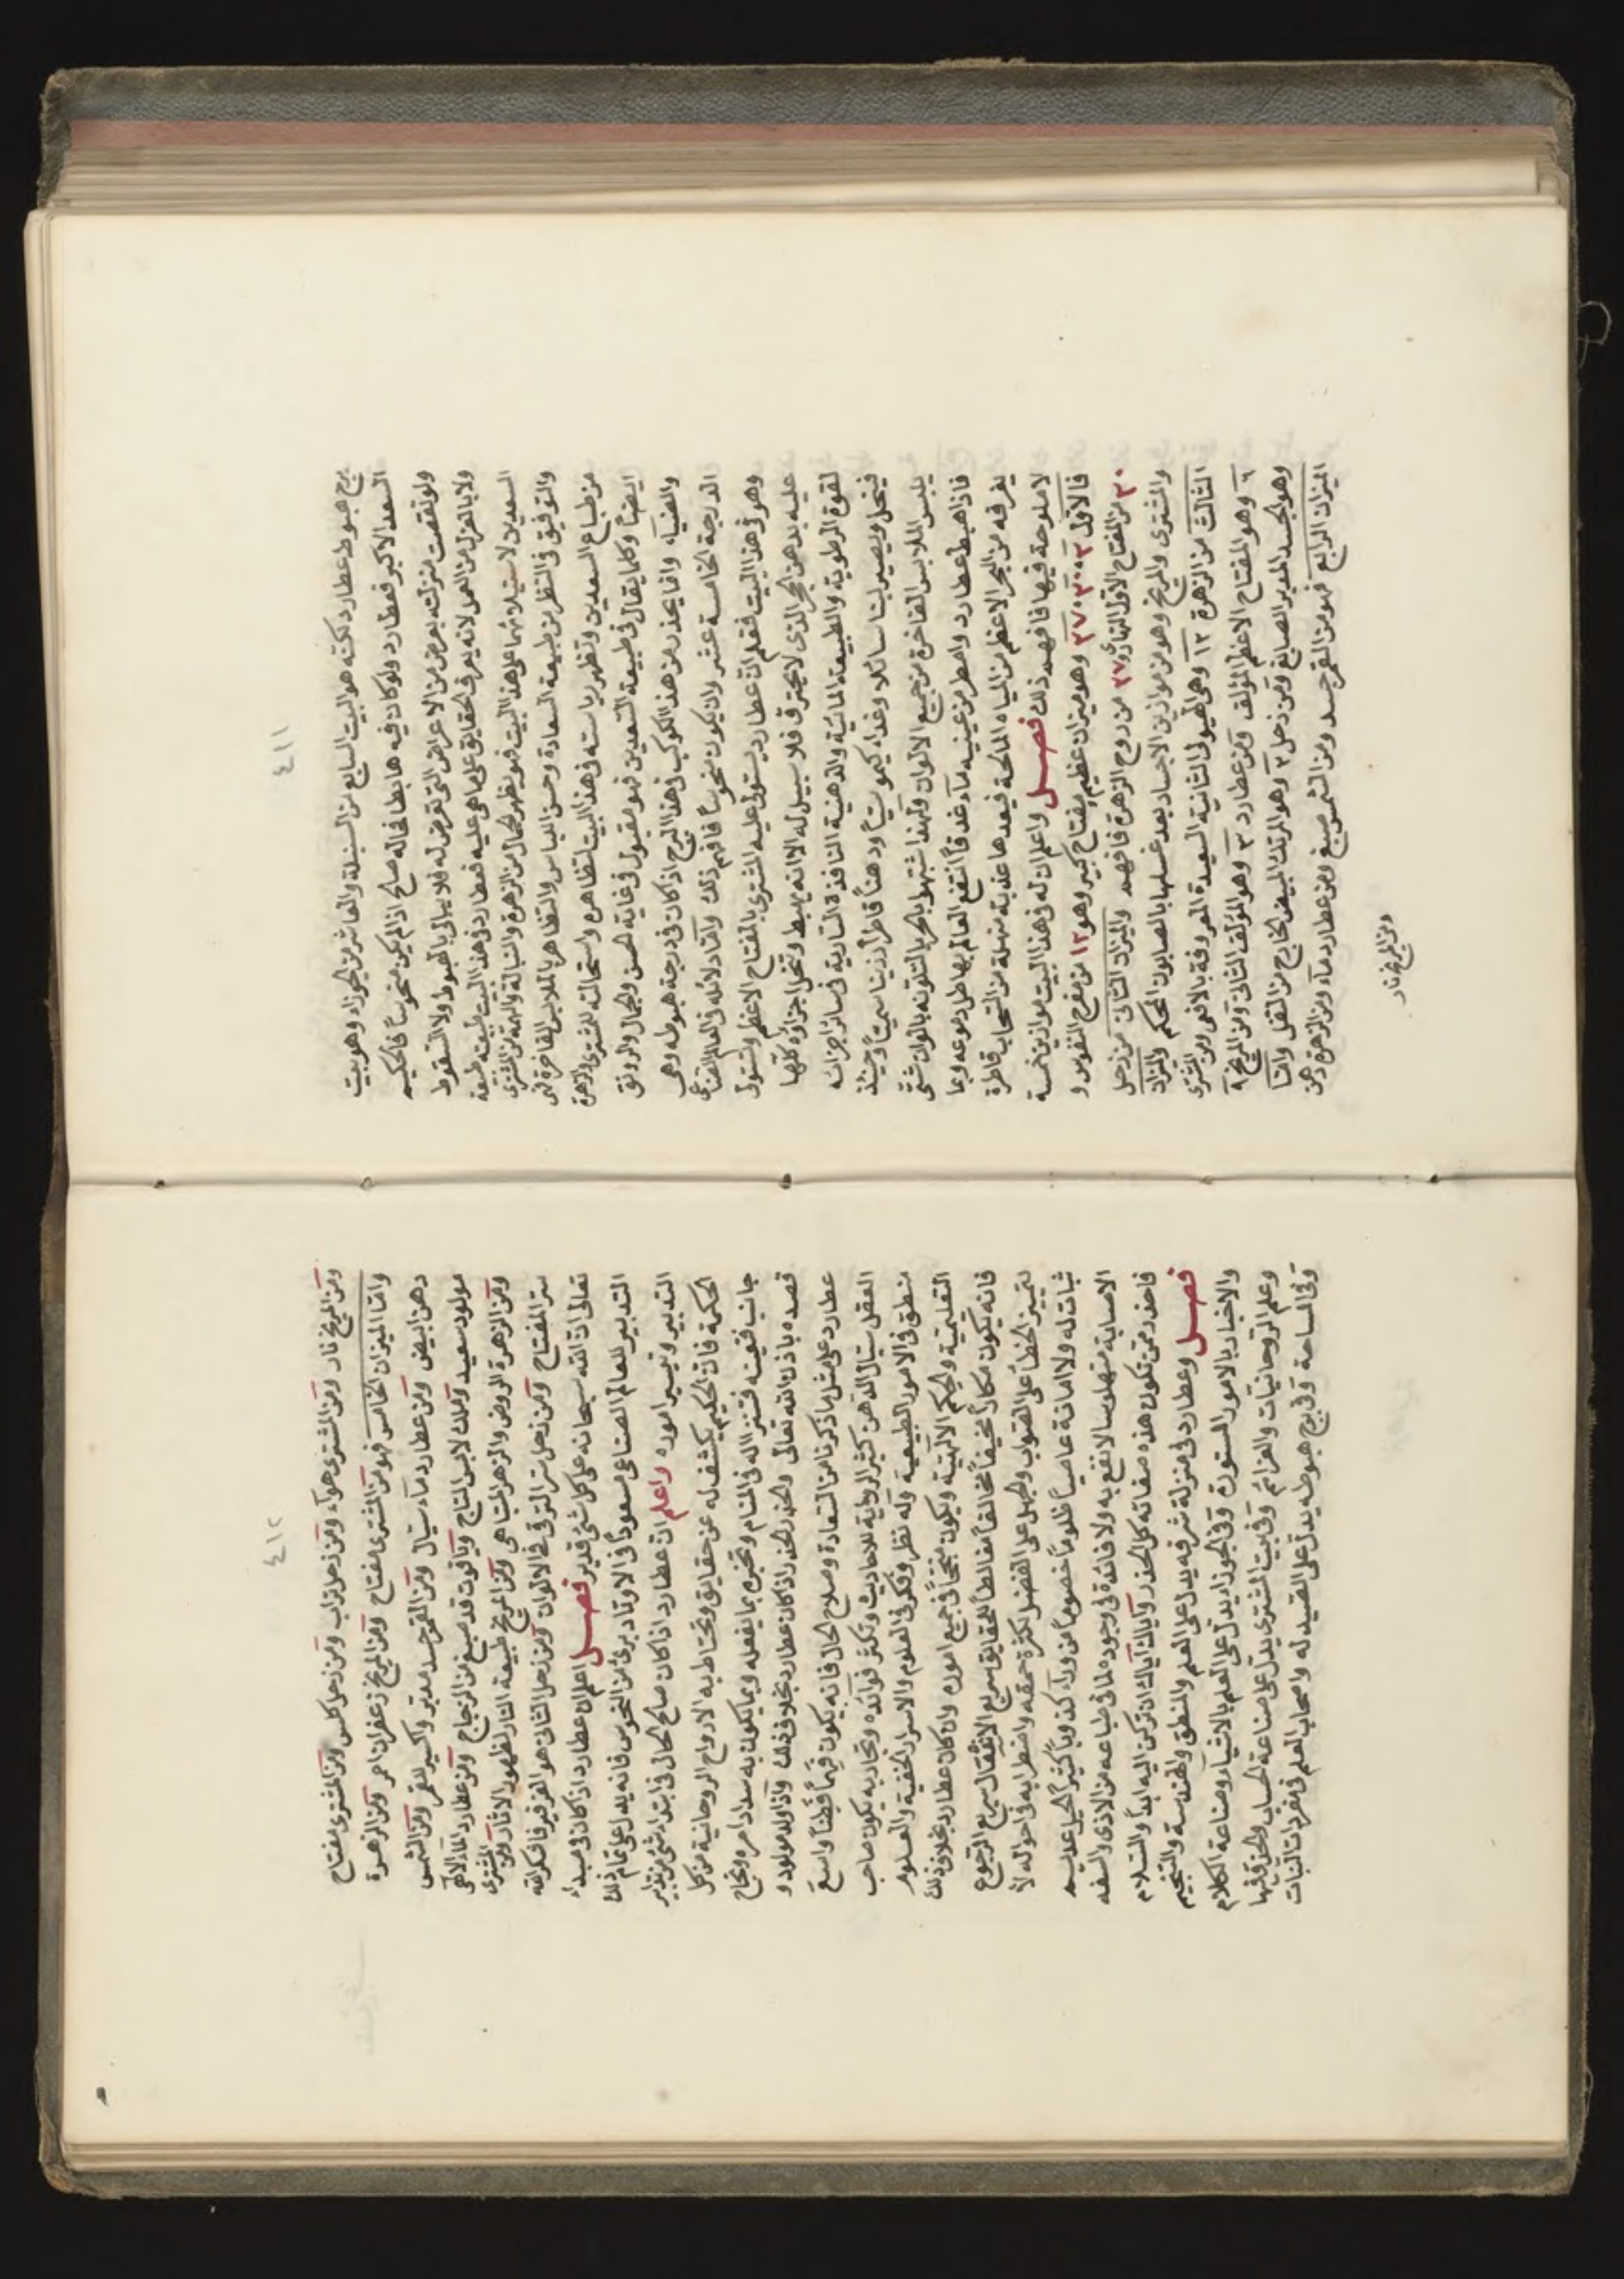 ٤١١
برج هبوط عطارد لكنه هو البيت السابع من السنبلة والعاشر من الجوزاء وهو بيت
السعد الاكبر فعطارد ولو كان فيه هابطا فحاله صالح اذا لم يكن منحوسا فالحكيم
ولو نقصت منزلته بعرض من الاعراض التي تعرض له فلا يبالي بالهبوط ولا السقوط
ولا بالعزل من العمل لانه يعرف الحقايق على ما هي عليه فعطارد في هذا البيت طبيعته طبيعة
السعدين لاستيلائهما على هذا البيت فهو يظهر الجمال من الزهرة والنبالة والهمة من المشتري
والتوفيق في النظر من طبيعة السعادة وحسن اللباس والتظاهر بالملابس الفاخرة فهي
من طباع السعدين وتظهر رياسته في هذا البيت لتظاهره واستحالته للمشتري والزهرة
ايضا وكلما يقال في طبيعة السعدين فهو مقبول في غاية الحسن والجمال والرونق
والضياء وانما يحذر من هذا الكوكب في هذا البرج اذا كان في درجة هبوطه وهي
الدرجة الخامسة عشر وان يكون منحوسا فافهم ذلك واما دلائله في العالم الصناعي
وهو في هذا البيت فقلم ان عطارد يستولي عليه المشتري بالمفتاح الاعظم وتستولي
عليه بدهن الحجر الذي لا يحترق فلا سبيل له الا انه يهبط وتنحل اجزاؤه كلها
لقوة الرطوبة والطبيعة المائية والدهنية النافذة السارية في سائر اجزائه
فينحل ويصير لبنا سائلا وغداء كيموسيا ودهنا قاطرا رزينا سميا وحينئذ
يلبس الملابس الفاخرة من جميع الالوان ولهذا شبهوه بالحرباء لتلونه بالوان شتى
فاذا هبط عطارد وامطر من عينيه ماء غدقا انتفع العالم بهاطل دموعه وبما
يغرفه من البحر الاعظم من المياه المالحة فيعيدها عذبة منهلة من السحاب قاطرة
لا ملوحة فيها فافهم ذلك فصل واعلم ان له في هذا البيت موازين خمسة
فالاول ٣ ٣٠ ٢٧ وهو ميزان عظيم مفتاح كبير وهو ١٢ من مفرح النفوس و
٣٠ من المفتاح الاول النهار و ٢٧ من روح الزهرة فافهم والميزان الثاني من زحل
والمشتري والمريخ وهو من موازين الاجساد بعد غسلها بالصابون المحكم والميزان
الثالث من الزهرة ١٢ وهي الهيولى الثانية السعيدة المعروفة بالافعى ومن المشتري
٦ وهو المفتاح الاعظم المؤلف ومن عطارد ٣ وهو المؤلف الثاني ومن المريخ ٩
وهو الجسد المدبر الصابغ ومن زحل ٣ وهو المرتك المبيض الخارج من الثفل واما
الميزان الرابع فهو من القمر جسد ومن الشمس صبغ ومن عطارد ماء ومن الزهرة دهن
ومن المريخ نار
٤١٢
ومن المريخ نار ومن المشتري هواء ومن زحل تراب ومن زحل كلس ومن المشتري مفتاح
واما الميزان الخامس فهو من المشتري مفتاح ومن المريخ زعفران احمر ومن الزهرة
دهن ابيض ومن عطارد ماء سيال ومن القمر جسد مدبر واكسير للقمر ومن الشمس
مولود سعيد وملك لابس التاج وياقوت قد صبغ من الزجاج ومن عطارد الماء الالهي
ومن الزهرة الروض والزهر المتباهي ومن المريخ طبيعة النار لظهور الاثار ومن المشتري
سر المفتاح ومن زحل سر الترقي في الالوان ومن زحل الثاني هو الفرفير فاشكر الله
تعالى ان الله سبحانه على كل شئ قدير فصل اعلم ان عطارد اذا كان في مبداء
التدبير للعالم الصناعي مسعودا في الاوتاد بريئا من النحوس فانه يدل على تمام ذلك
التدبير وتيسير اموره واعلم ان عطارد اذا كان صالح الحال في ابتداء شئ من تدابير
الحكمة فان الحكيم يكشف له عن حقايق وتحتاط به الارواح الروحانية من كل
جانب فتعينه فتتنزل له في المنام وتخبره بما يفعله وبما يكون به سداد امره ونجاح
قصده باذن الله تعالى والحذر الحذر اذا كان عطارد بخلاف ذلك واذا ولد مولود و
عطارد على مثل ما ذكرنا من السعادة وصلاح الحال فانه يكون فهما فطنا واسع
العقل سيال الذهن كثير الرواية للاحاديث وتكثر فوائده وتجاربه يكون صاحب
منطق في الامور الطبيعية وله نظر وفكر في العلوم والاسرار الخفية والعلوم
التعليمية والحكم الالهية ويكون منجحا في جميع اموره وان كان عطارد بخلاف ذلك
فانه يكون مكارا مخيفا مخالفا مغالطا للحقايق سريع الانتقال سريع الرجوع
لتمييز الخطأ على الصواب والجهل على الفضل لكثرة حمقه واضطرابه في احواله لا
ثبات له ولا امانة عاصيا ظلوما خصوما مزورا كذوبا كثير الحيل عديم
الاصابة متهاونا لا نفع به ولا فائدة في وجوده لما في طباعه من الاذى والسفه
فاحذر ممن تكون هذه صفاته كل الحذر واياك اياك ان تركن اليه ابدا والسلام
فصل وعطارد في منزلة شرفه يدل على العلم والمنطق والهندسة والتنجيم
والاخبار بالامور المستورة وفي الجوزاء يدل على العلم بالاشياء وصناعة الكلام
وعلم الروحانيات والعزائم وفي بيت المشتري يدل على صناعة الحساب والحذق فيها
وفي المساحة وفي برج هبوطه يدل على الصيدلة واصحاب العلم في مفردات النبات